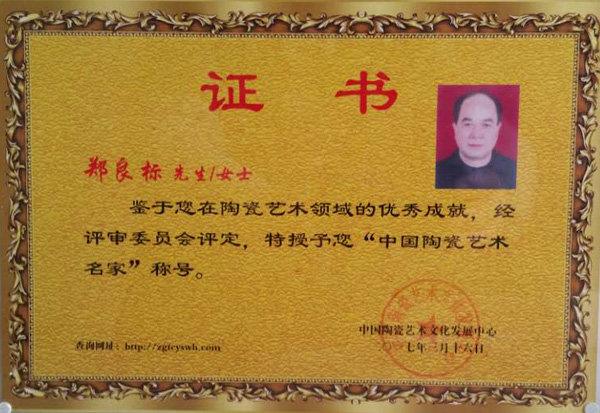 证书
郑良标 先生/女士
鉴于您在陶瓷艺术领域的优秀成就，经
评审委员会评定，特授予您“中国陶瓷艺术
名家”称号。
中国陶瓷艺术文化发展中心
查询网址：http://zgtcyswh.com
七年三月十六日